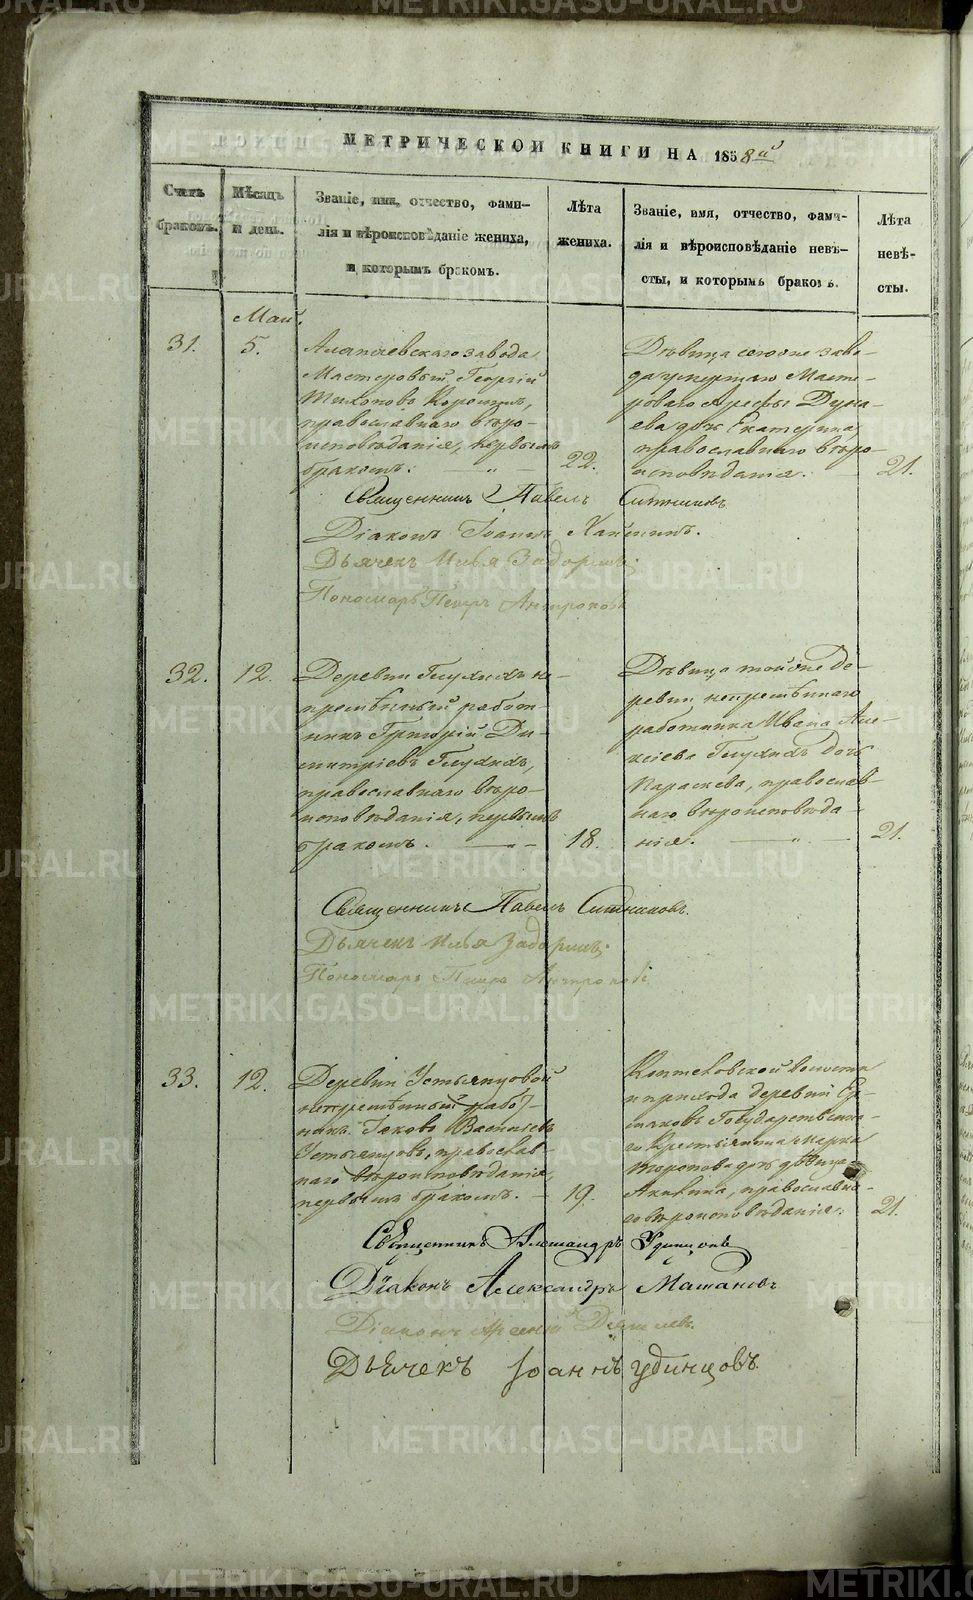 МЕТРИЧЕСКОЙ КНИГИ НА 1858й
Счетъ браковъ.
Мѣсяцъ и день.
Званіе, имя, отчество, фами-
лія и вѣроисповѣданіе жениха,
и которымъ бракомъ.
Лѣта
жениха.
Званіе, имя, отчество, фами-
лія и вѣроисповѣданіе невѣ-
сты, и которымъ бракомъ.
Лѣта
невѣ-
сты.
Май.
31.
5.
Алапаевскаго завода
Мастеровый Георгій
Тихоновъ
православнаго вѣро-
исповѣданія, первымъ
бракомъ.
22.
Дѣвица того же заво-
да умершаго Масте-
роваго Арефы Дуна-
ева дочь Екатерина,
православнаго вѣро
исповѣданія.
21.
Священникъ Павелъ Ситниковъ.
Діаконъ Іоаннъ
Дьячекъ Илья Задоринъ.
Пономарь Петръ Антроповъ
32.
12.
Деревни Глухихъ не-
премѣнный работ-
никъ Григорій Ди-
митріевъ Глухихъ,
православнаго вѣро-
исповѣданія, первымъ
бракомъ.
18.
Дѣвица той же де-
ревни непремѣннаго
работника Ивана Але-
ксѣева Глухихъ дочь
Параскева, православ-
наго вѣроисповѣда-
нія.
21.
Священникъ Павелъ Ситниковъ.
Дьячекъ Илья Задоринъ.
Пономарь Петръ Антроповъ
33.
12.
Деревни Устьянцовой
непремѣнный работ-
никъ Іаковъ Васильевъ
Устьянцовъ, православ-
наго вѣроисповѣданія,
первымъ бракомъ.
19.
Коптеловской волости
и прихода деревни Ер-
маковъ Государственна-
го Крестьянина Марка
дочь дѣвица
Акилина, православна-
го вѣроисповѣданія.
21.
Священникъ Александръ Удинцовъ
Діаконъ Александръ
Діаконъ Арсеній
Дьячекъ Іоаннъ Удинцовъ.
METRIKI.GASO-URAL.RU